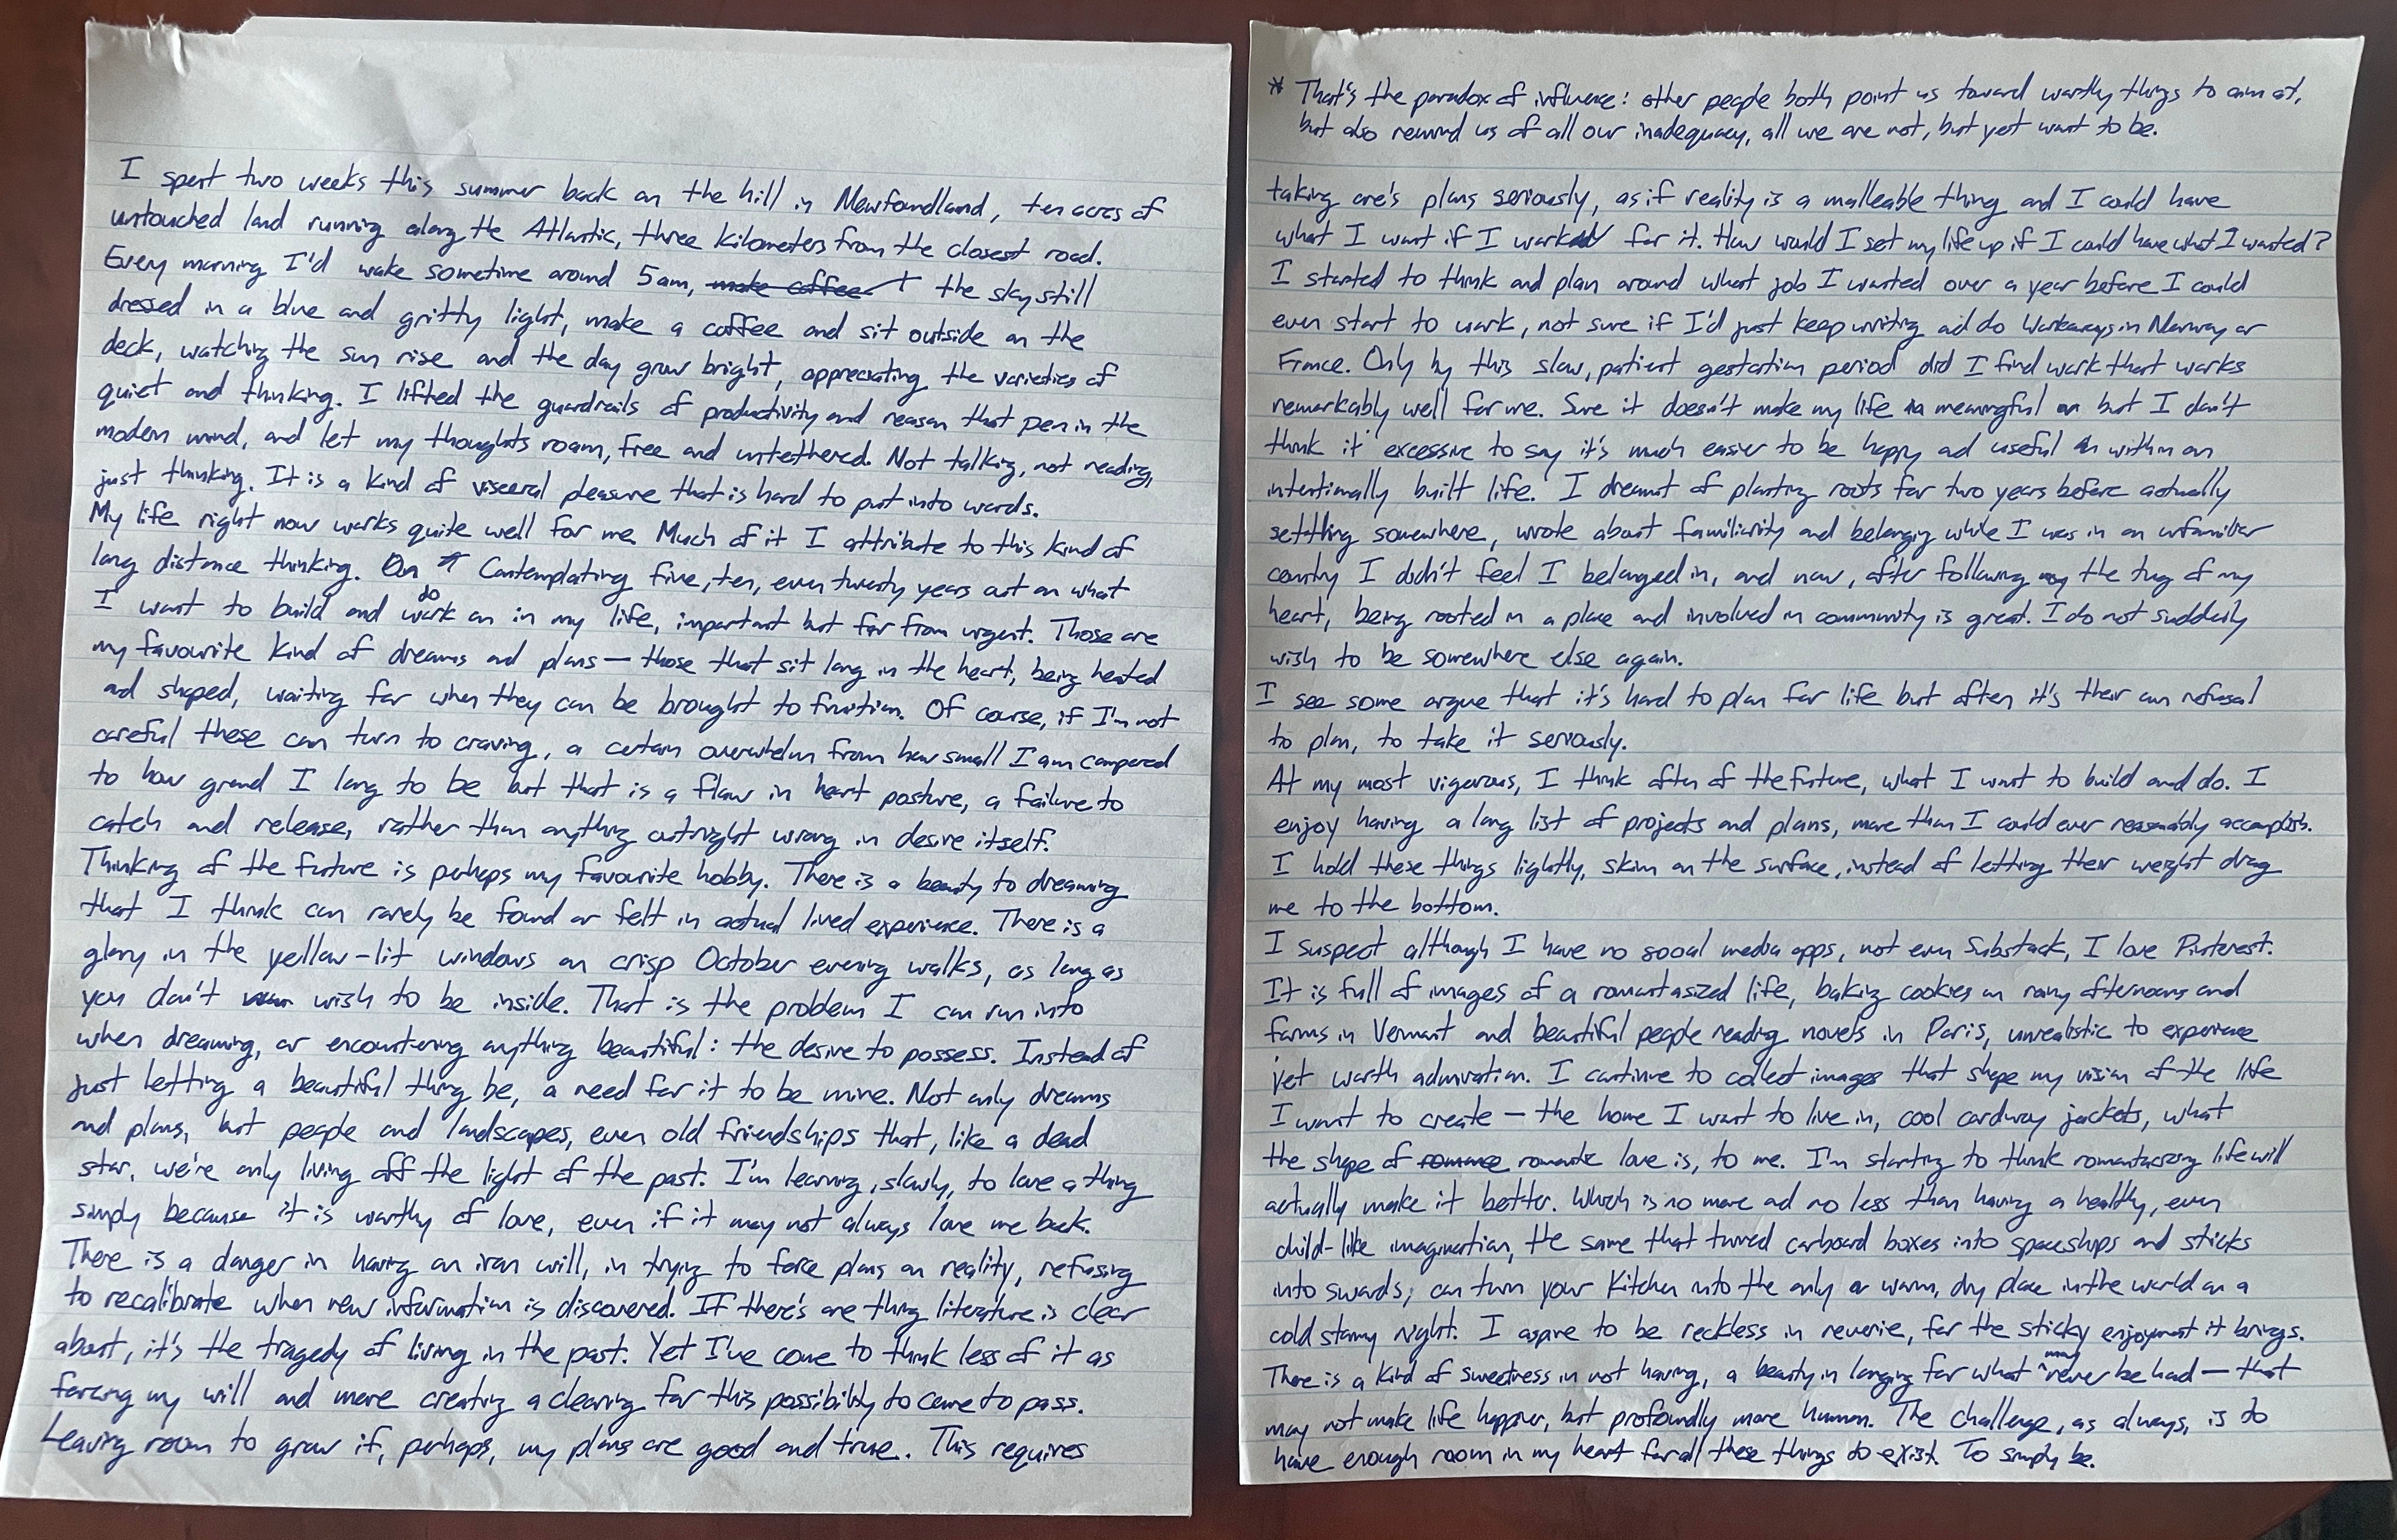 I spent two weeks this summer back on the hill in Newfoundland, ten acres of
untouched land running along the Atlantic, three kilometers from the closest road.
Every morning I'd wake sometime around 5am, make coffee the sky still
dressed in a blue and gritty light, make a coffee and sit outside on the
deck, watching the sun rise and the day grow bright, appreciating the varieties of
quiet and thinking. I lifted the guardrails of productivity and reason that pen in the
modern mind, and let my thoughts roam, free and untethered. Not talking, not reading,
just thinking. It is a kind of visceral pleasure that is hard to put into words.
My life right now works quite well for me. Much of it I attribute to this kind of
long distance thinking. On Contemplating five, ten, even twenty years out on what
I want to build and do work on in my life, important but far from urgent. Those are
my favourite kind of dreams and plans — those that sit long in the heart, being heated
and shaped, waiting for when they can be brought to fruition. Of course, if I'm not
careful these can turn to craving, a certain overwhelm from how small I am compared
to how grand I long to be but that is a flaw in heart posture, a failure to
catch and release, rather than anything outright wrong in desire itself.
Thinking of the future is perhaps my favourite hobby. There is a beauty to dreaming
that I think can rarely be found or felt in actual lived experience. There is a
glory in the yellow-lit windows on crisp October evening walks, as long as
you don't wish to be inside. That is the problem I can run into
when dreaming, or encountering anything beautiful: the desire to possess. Instead of
just letting a beautiful thing be, a need for it to be mine. Not only dreams
and plans, but people and landscapes, even old friendships that, like a dead
star, we're only living off the light of the past. I'm learning, slowly, to love a thing
simply because it is worthy of love, even if it may not always love me back.
There is a danger in having an iron will, in trying to force plans on reality, refusing
to recalibrate when new information is discovered. If there's one thing literature is clear
about, it's the tragedy of living in the past. Yet I've come to think less of it as
forcing my will and more creating a clearing for this possibility to come to pass.
Leaving room to grow if, perhaps, my plans are good and true. This requires
* That's the paradox of influence: other people both point us toward worthy things to aim at,
but also remind us of all our inadequacy, all we are not, but yet want to be.
taking one's plans seriously, as if reality is a malleable thing and I could have
what I want if I worked for it. How would I set my life up if I could have what I wanted?
I started to think and plan around what job I wanted over a year before I could
even start to work, not sure if I'd just keep writing and do Workaways in Norway or
France. Only by this slow, patient gestation period did I find work that works
remarkably well for me. Sure it doesn't make my life meaningful but I don't
think it excessive to say it's much easier to be happy and useful within an
intentionally built life. I dreamt of planting roots for two years before actually
settling somewhere, wrote about familiarity and belonging while I was in an unfamiliar
country I didn't feel I belonged in, and now, after following my the tug of my
heart, being rooted in a place and involved in community is great. I do not suddenly
wish to be somewhere else again.
I see some argue that it's hard to plan for life but often it's their own refusal
to plan, to take it seriously.
At my most vigorous, I think often of the future, what I want to build and do. I
enjoy having a long list of projects and plans, more than I could ever reasonably accomplish.
I hold these things lightly, skim on the surface, instead of letting their weight drag
me to the bottom.
I suspect although I have no social media apps, not even Substack, I love Pinterest.
It is full of images of a romantasized life, baking cookies on rainy afternoons and
farms in Vermont and beautiful people reading novels in Paris, unrealistic to experience
yet worth admiration. I continue to collect images that shape my vision of the life
I want to create — the home I want to live in, cool corduroy jackets, what
the shape of romance romantic love is, to me. I'm starting to think romanticizing life will
actually make it better. Which is no more and no less than having a healthy, even
child-like imagination, the same that turned carboard boxes into spaceships and sticks
into swords; can turn your kitchen into the only warm, dry place in the world on a
cold stormy night. I aspire to be reckless in reverie, for the sticky enjoyment it brings.
There is a kind of sweetness in not having, a beauty in longing for what may never be had — that
may not make life happier, but profoundly more human. The challenge, as always, is to
have enough room in my heart for all these things to exist. To simply be.